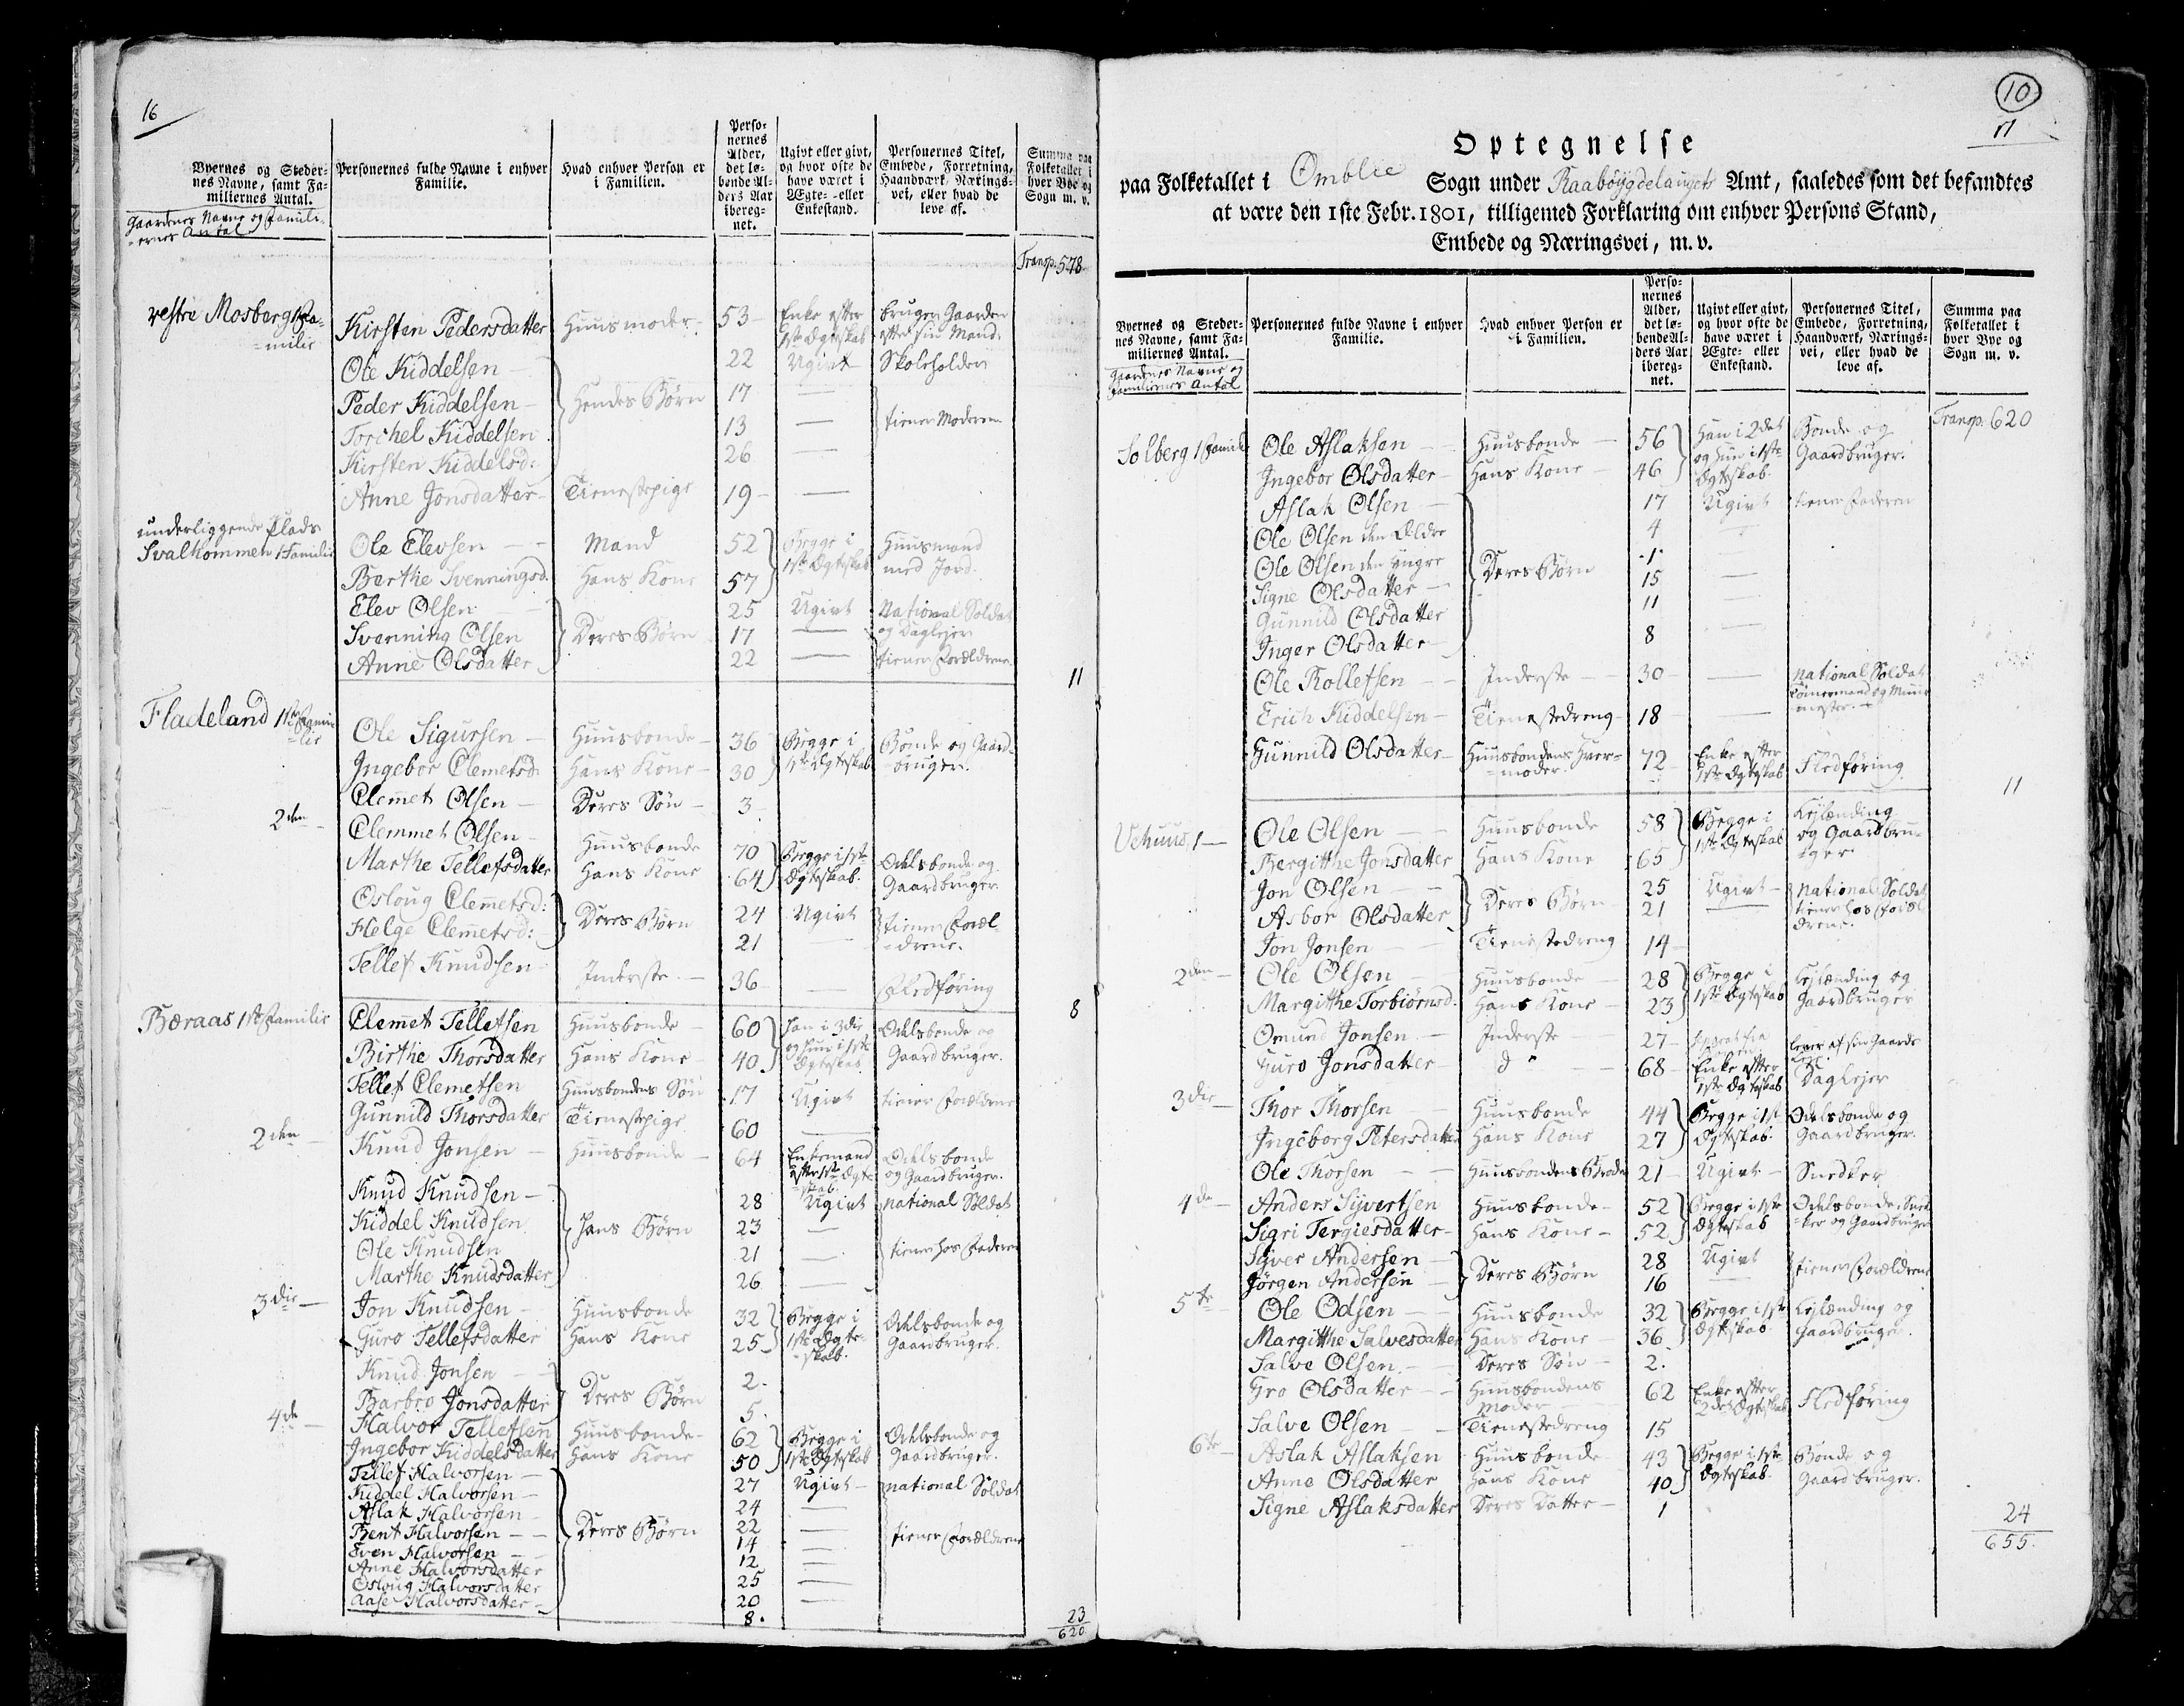 16
Byernes og Steder-
nes Navne, samt Fa-
miliernes Antal.
Gaardenes Navne og Famili-
-ernes Antal
Personernes fulde Navne i enhver
Familie.
Hvad enhver Person er
i Familien.
Perso-
nernes
Alder,
det lø-
bende Al-
ders Aar
ibereg-
net.
Ugivt eller givt,
og hvor ofte de
have været i
Ægte- eller
Enkestand.
Personernes Titel,
Embede, Forretning,
Haandværk, Nærings-
vei, eller hvad de
leve af.
Summa paa
Folketallet i
hver Bye og
Sogn m. v.
Transp. 578
vestre Mosberg 1 Fa-
-milie
Kirsten Pedersdatter Huusmoder 53 Enke efter 1ste Ægteskab bruger Gaarden efter sin Mand.
Ole Kiddelsen 22 Ugivt Skoleholder
Peder Kiddelsen Hendes Børn 17 —
Torchel Kiddelsen 13 — tiener Moderen
Kirsten Kiddelsd: 26 —
Anne Jonsdatter Tienestepige 19 —
underliggende Plads
Svalkommen 1 Familie Ole Elevsen Mand 52 Begge i 1ste Ægteskab Huusmand med Jord
Berthe Svenningsd. Hans Kone 57
Elev Olsen 25 Ugivt National Soldat og Daglejer
Svenning Olsen Deres Børn 17 —
Anne Olsdatter 22 — tiener Forældrene
11
Fladeland 1ste Fami-
-lie
Ole Sigursen Huusbonde 36 Begge i 1ste Ægteskab Bonde og Gaard-bruger.
Ingebor Clemetsd. Hans Kone 30
Clemet Olsen Deres Søn 3
2den Clemmet Olsen Huusbonde 70 Begge i 1ste Ægteskab. Odelsbonde og Gaardbruger
Marthe Tellefsdatter Hans Kone 64
Osloug Clemetsd: Deres Børn 24 Ugivt tiener Foræl-drene.
Helge Clemetsd: 21 —
Tellef Knudsen Inderste 36 — Fledføring
8
Bæraas 1ste Familie Clemet Tellefsen Huusbonde 60 Han i 3die og hun i 1ste Ægteskab Odelsbonde og Gaardbruger.
Birthe Thorsdatter Hans Kone 40
Tellef Clemetsen Huusbondens Søn 17 Ugivt tiener Forældrene
Gunnild Thorsdatter Tienestepige 60 —
2den Knud Jonsen Huusbonde 64 Enkemand efter 1ste Ægte-skab Odelsbonde og Gaardbruger.
Knud Knudsen 28 Ugivt national Soldat
Kiddel Knudsen Hans Børn 23 —
Ole Knudsen 21 — tiener hos Faderen
Marthe Knudsdatter 26 —
3die Jon Knudsen Huusbonde 32 Begge i 1ste Ægte-skab. Odelsbonde og Gaardbruger.
Guro Tellefsdatter Hans Kone 25
Knud Jonsen Deres Børn 2.
Barbro Jonsdatter 5.
4de Halvor Tellefsen Huusbonde 62 Begge i 1ste Ægteskab Odelsbonde og Gaardbruger.
Ingebor Kiddelsdatter Hans Kone 50
Tellef Halvorsen 27 Ugivt national Soldat
Kiddel Halvorsen 24 —
Aslak Halvorsen 22 —
Bent Halvorsen Deres Børn 14 — tiener Forældrene
Even Halvorsen 12 —
Anne Halvorsdatter 25 —
Osloug Halvorsdatter 20 —
Aase Halvorsdatter 8.
23
620
10
17
Optegnelse
paa Folketallet i Omblie Sogn under Raabøygdelaugets Amt, saaledes som det befandtes
at være den 1ste Febr. 1801, tilligemed Forklaring om enhver Persons Stand,
Embede og Næringsvei, m. v.
Byernes og Steder-
nes Navne, samt Fa-
miliernes Antal.
Gaardenes Navne og
Familiernes Antal
Personernes fulde Navne i enhver
Familie.
Hvad enhver Person er
i Familien.
Perso-
nernes
Alder,
det lø-
bende Al-
ders Aar
ibereg-
net.
Ugivt eller givt,
og hvor ofte de
have været i
Ægte- eller
Enkestand.
Personernes Titel,
Embede, Forretning,
Haandværk, Nærings-
vei, eller hvad de
leve af.
Summa paa
Folketallet i
hver Bye og
Sogn m. v.
Transp. 620
Solberg 1 Familie Ole Aslaksen Huusbonde 56 Han i 2det og hun i 1ste Ægteskab. Bonde og Gaardbruger.
Ingebor Olsdatter Hans Kone 46
Aslak Olsen 17 Ugivt tiener Faderen
Ole Olsen den Ældre 4
Ole Olsen den yngre Deres Børn 1
Signe Olsdatter 15 —
Gunnild Olsdatter 11 —
Inger Olsdatter 8 —
Ole Rollefsen Inderste 30 — national Soldat
Erich Kiddelsen Tienestedreng 18 —
Gunnild Olsdatter Huusbondens Svær-moder. 72 Enke efter 1ste Ægteskab Fledføring
11
Vehuus 1 Ole Olsen Huusbonde 58 Begge i 1ste Ægteskab Lejlænding og Gaardbru-ger
Bergitthe Jonsdatter Hans Kone 65
Jon Olsen Deres Børn 25 Ugivt National Soldat
Asbor Olsdatter 21 — tiener hos Foræl-drene.
Jon Jonsen Tienestedreng 14
2den Ole Olsen Huusbonde 28 Begge i 1ste Ægteskab Lejlænding og Gaardbruger
Margitthe Torbiørnsd. Hans Kone 23
Omund Jonsen Inderste 27 lever af sin Gaards
Guro Jonsdatter d° 68 Enke efter 1ste Ægteskab Daglejer
3die Thor Thorsen Huusbonde 44 Begge i 1ste Ægteskab. Odelsbonde og Gaardbruger.
Ingeborg Petersdatter Hans Kone 27
Ole Thorsen Huusbondens Broder 21 Ugivt Snedker
4de Anders Sijvertsen Huusbonde 52 Begge i 1ste Ægteskab Odelsbonde, Sned-ker og Gaardbruger
Sigri Tergiesdatter Hans Kone 52
Sijver Andersen Deres Børn 28 Ugivt tiener Forældrene
Jørgen Andersen 16 —
5te Ole Odsen Huusbonde 32 Begge i 1ste Ægteskab. Lejlænding og Gaardbruger.
Margitthe Salvesdatter Hans Kone 36
Salve Olsen Deres Søn 2.
Gro Olsdatter Huusbondens Moder 62 Enke efter 2det Ægteskab Fledføring
Salve Olsen Tienestedreng 15
6te Aslak Aslaksen Huusbonde 43 Begge i 1ste Ægteskab. Bonde og Gaardbruger.
Anne Olsdatter Hans Kone 40
Signe Aslaksdatter Deres Datter 1
24
655.